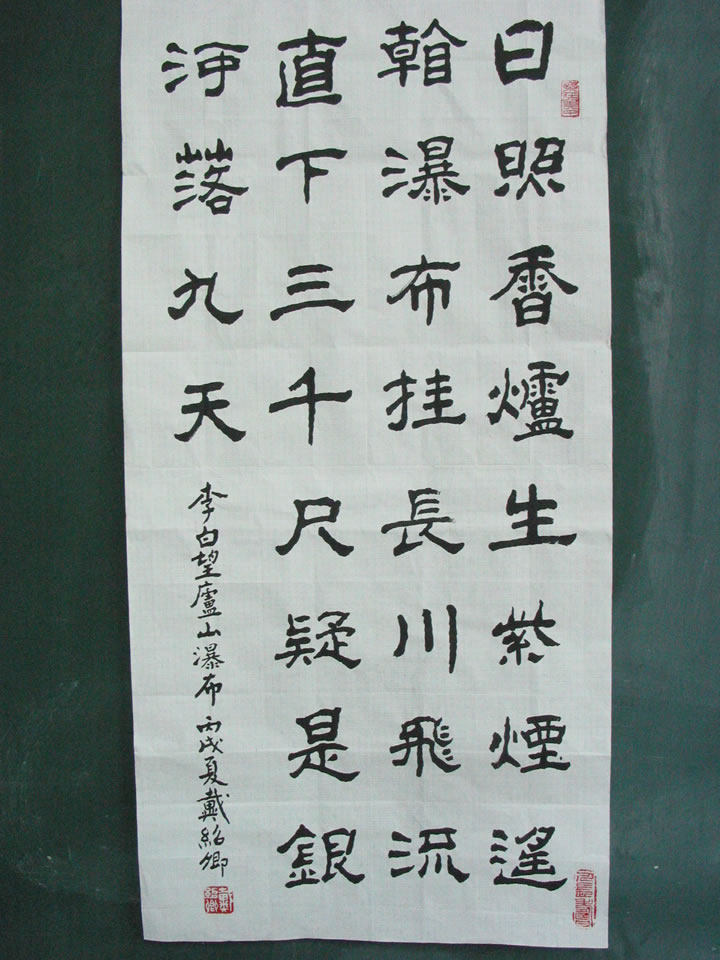 日照香爐生紫煙遙
看瀑布挂長川飛流
直下三千尺疑是銀
河落九天
李白望廬山瀑布 丙戌夏戴紹卿